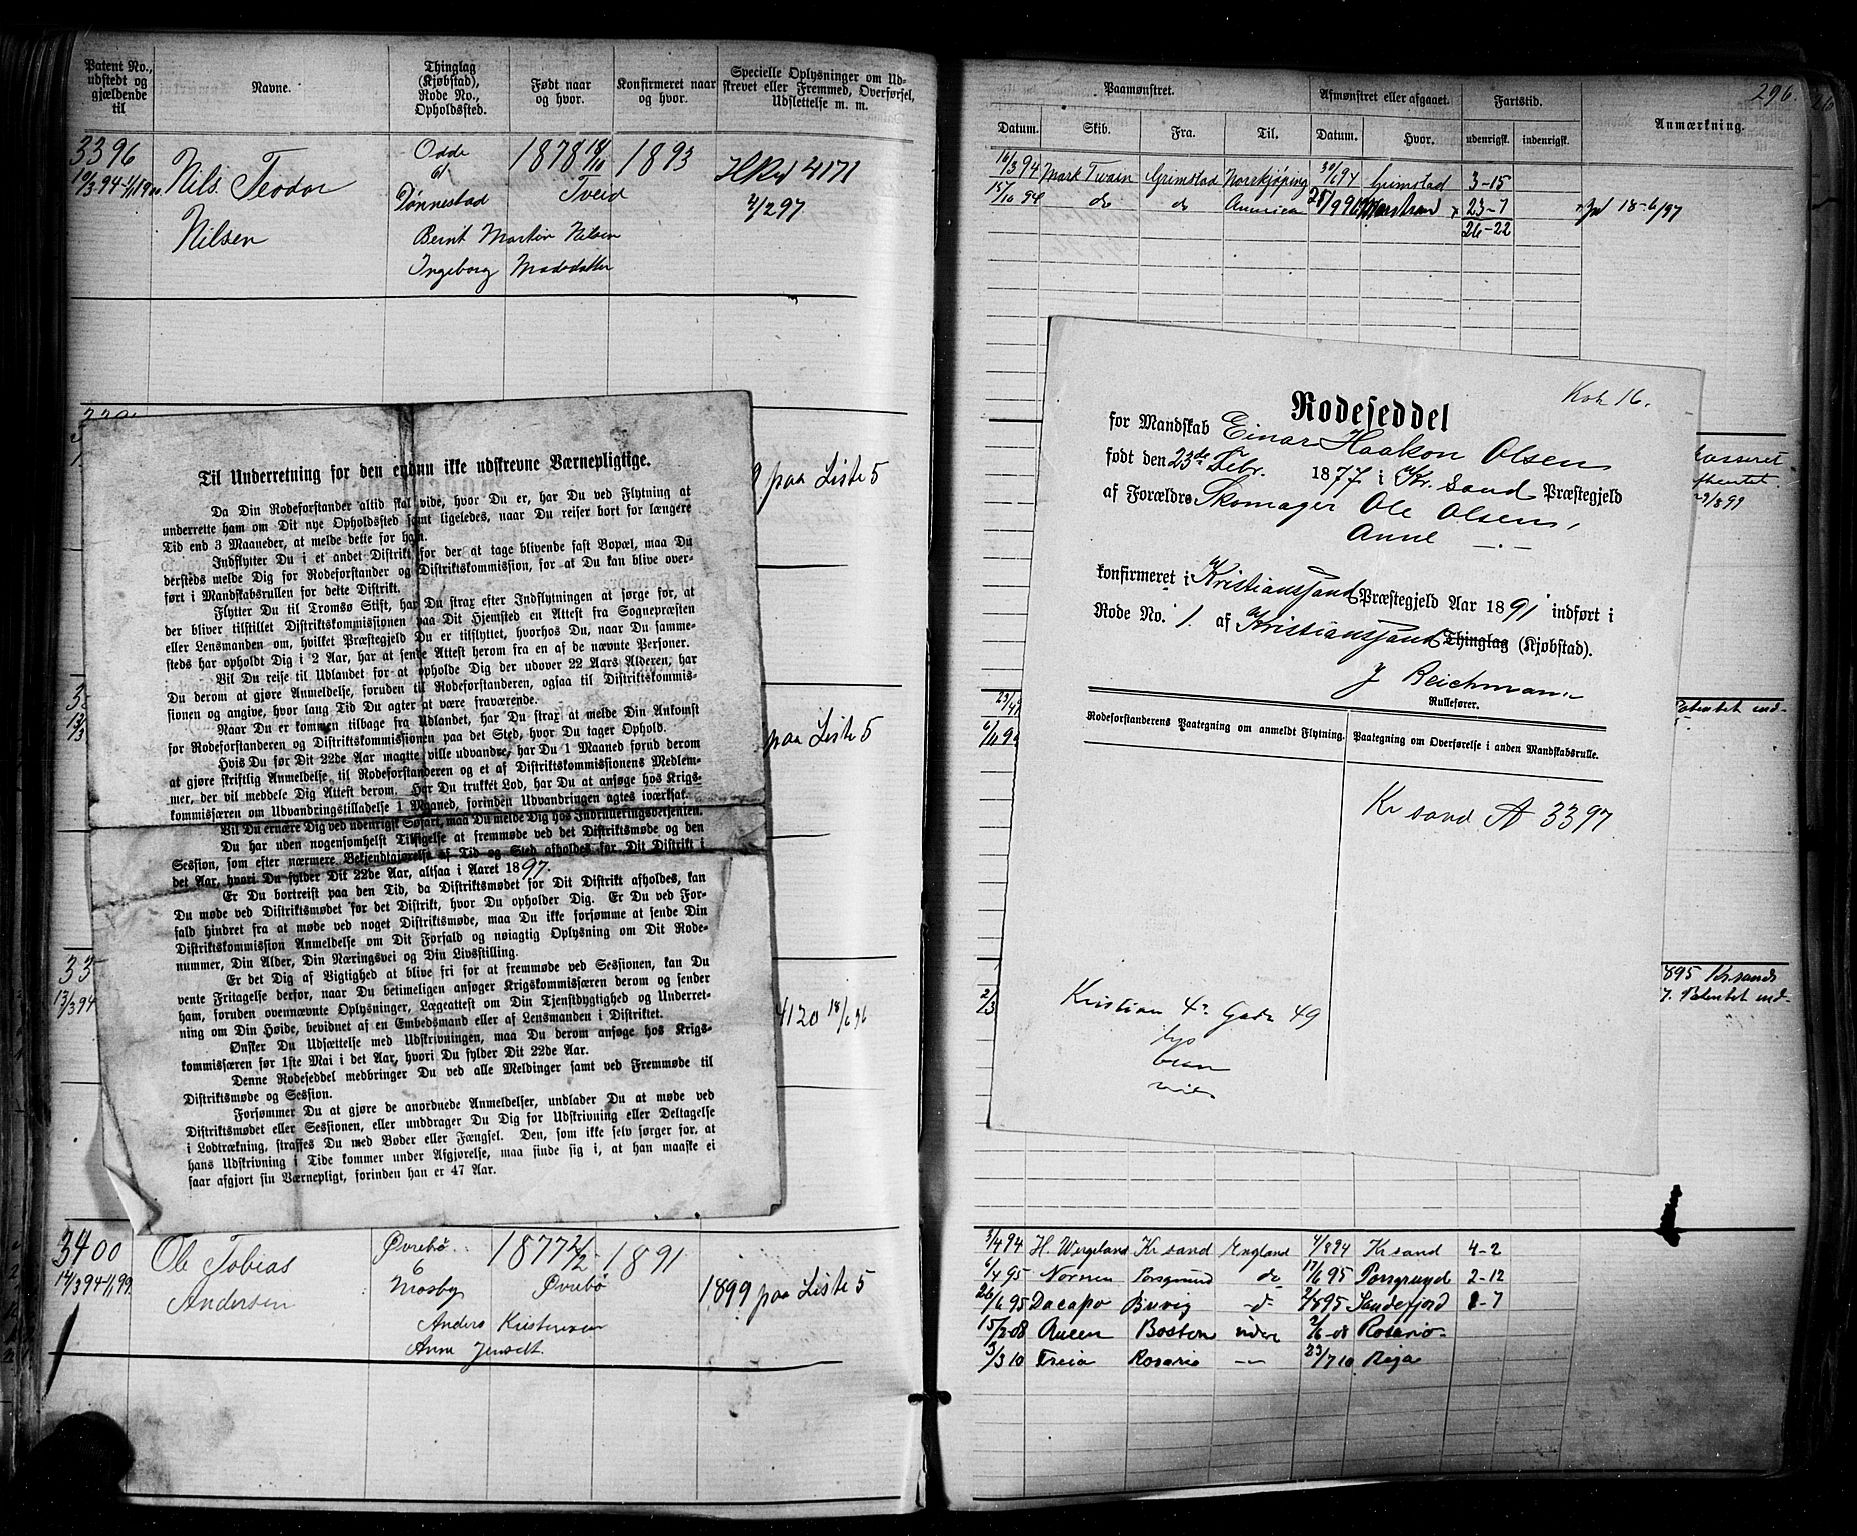 Patent No., udstedt og gjældende til
Navne.
Thinglag (Kjøbstad), Rode No., Opholdssted.
Født naar og hvor.
Konfirmeret naar og hvor.
Specielle Oplysninger om Udskrevet eller Fremmed, Overførsel, Udslettelse m. m.
3396
10/3 94-1/1 19
Nils Teodor
Nilsen
Odde
Tønnestad
1878 18/11
Tveid
1893
4171
2/2 97
Bernt Martin Nilsen
Ingeborg Madsdatter
Til Underretning for den endnu ikke udskrevne Værnepligtige.
Da Din Rodeforstander altid skal vide, hvor Du er, har Du ved Flytning at
underrette ham om Dit nye Opholdssted samt ligeledes, naar Du reiser bort for længere
Tid end 3 Maaneder, at melde dette for ham.
Indflytter Du i et andet Distrikt for der at tage blivende fast Bopæl, maa Du
dersteds melde Dig for Rodeforstander og Distriktskommission, for at Du kan blive over-
ført i Mandskabsrullen for dette Distrikt.
Flytter Du til Tromsø Stift, har Du strax efter Indflytningen at sørge for, at
der bliver tilstillet Distriktskommissionen paa Dit Hjemsted en Attest fra Sognepræsten
eller Lensmanden om, hvilket Præstegjeld Du er tilflyttet, hvorhos Du, naar Du samme-
steds har opholdt Dig i 2 Aar, har at sende Attest herom fra en af de nævnte Personer.
Vil Du reise til Udlandet for at opholde Dig der udover 22 Aars Alderen, har
Du derom at gjøre Anmeldelse, foruden til Rodeforstanderen, ogsaa til Distriktskommis-
sionen og angive, hvor lang Tid Du agter at være fraværende.
Naar Du er kommen tilbage fra Udlandet, har Du strax at melde Din Ankomst
for Rodeforstanderen og Distriktskommissionen paa det Sted, hvor Du tager Ophold.
Hvis Du før Dit 22de Aar maatte ville udvandre, har Du 1 Maaned forud derom
at gjøre skriftlig Anmeldelse til Rodeforstanderen og et af Distriktskommissionens Medlem-
mer, der vil meddele Dig Attest derom. Har Du trukket Lod, har Du at ansøge hos Krigs-
kommissæren om Udvandringstilladelse 1 Maaned, forinden Udvandringen agtes iværksat.
Vil Du ernære Dig ved udenrigsk Søfart, maa Du melde Dig hos Indrulleringsbetjenten.
Du har uden nogensomhelst Tilsigelse at fremmøde ved det Distriktsmøde og den
Session, som efter nærmere Bekjendtgjørelse af Tid og Sted afholdes for Dit Distrikt i
det Aar, hvori Du fylder Dit 22de Aar, altsaa i Aaret 1897.
Er Du bortreist paa den Tid, da Distriktsmødet for Dit Distrikt afholdes, kan
Du møde ved Distriktsmødet for det Distrikt, hvor Du opholder Dig. Er Du ved For-
fald hindret fra at møde ved noget Distriktsmøde, maa Du ikke forsømme at sende Din
Distriktskommission Anmeldelse om Dit Forfald og nøiagtig Oplysning om Dit Rode-
nummer, Din Alder, Din Næringsvei og Din Livsstilling.
Er det Dig af Vigtighed at blive fri for at fremmøde ved Sessionen, kan Du
vente Fritagelse derfor, naar Du betimeligen ansøger Krigskommissæren derom og sender
ham, foruden ovennævnte Oplysninger, Lægeattest om Din Tjenstdygtighed og Underret-
ning om Din Høide, bevidnet af en Embedsmand eller af Lensmanden i Distriktet.
Ønsker Du Udsættelse med Udskrivningen, maa Du derom ansøge hos Krigs-
kommissæren før 1ste Mai i det Aar, hvori Du fylder Dit 22de Aar.
Denne Rodeseddel medbringer Du ved alle Meldinger samt ved Fremmøde til
Distriktsmøde og Session.
Forsømmer Du at gjøre de anordnede Anmeldelser, undlader Du at møde ved
Distriktsmødet eller Sessionen, eller unddrager Du Dig for Udskrivning eller Deltagelse
i Lodtrækning, straffes Du med Bøder eller Fængsel. Den, som ikke selv sørger for, at
hans Udskrivning i Tide kommer under Afgjørelse, maa finde sig i, at han maaske ei
faar afgjort sin Værnepligt, forinden han er 47 Aar.
9 paa Liste 5
paa Liste 5
33
13/3 94
4120 18/6 96
3400
14/3 94-1/1 99
Ole Tobias
Andersen
Øvrebø
6
Mosby
1877 2/2
Øvrebø
1891
1899 paa Liste 5
Anders Kristensen
Anne Jensdt.
296.
Paamønstret.
Afmønstret eller afgaaet.
Fartstid.
Anmærkning.
Datum. Skib. Fra. Til. Datum. Hvor. udenrigsk. indenrigsk.
16/3 94 Mark Twain Grimstad Norrkjøping 30/6 94 Grimstad 3-15
15/10 94 do do America 28/9 96 Marstrand x 23-7 x Ind 18-6/97
26-22
Rodeseddel
for Mandskab Einar Haakon Olsen
født den 23de Febr. 1877 i Kr.sand Præstegjeld
af Forældre Skomager Ole Olsen,
Anne
konfirmeret i Kristianssand Præstegjeld Aar 1891 indført i
Rode No. 1. af Kristianssand Thinglag (Kjøbstad).
J Reichmann
Rullefører.
Rodeforstanderens Paategning om anmeldt Flytning.
Paategning om Overførelse i anden Mandskabsrulle.
Kr sand A 3397
Kristian 4s Gade 49
lys
brun
2/4 94 H. Wergeland Kr sand England 4/8 94 Kr sand 4-2
6/4 95 Nornen Porsgrund do 17/6 95 Porsgrund 2-12
26/6 95 Dacapo Brevig -d- 2/8 95 Sandefjord 1-7
15/2 08 Queen Boston videre 2/6-08 Rosario
3/3 10 Freia Rosario -"- 23/7 10 Riga